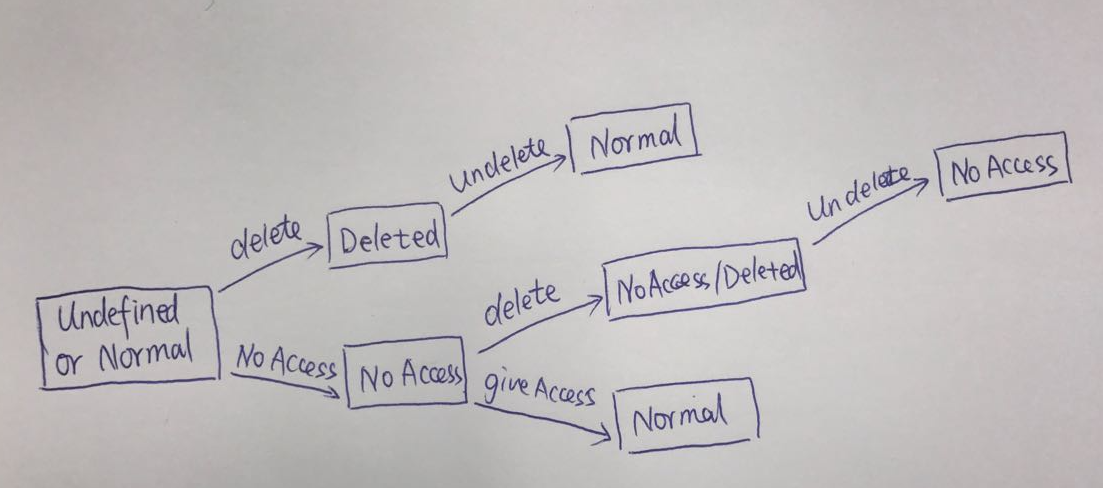 Undefined
or Normal
delete
Deleted
undelete
Normal
No Access
No Access
delete
NoAccess/Deleted
Undelete
No Access
give Access
Normal